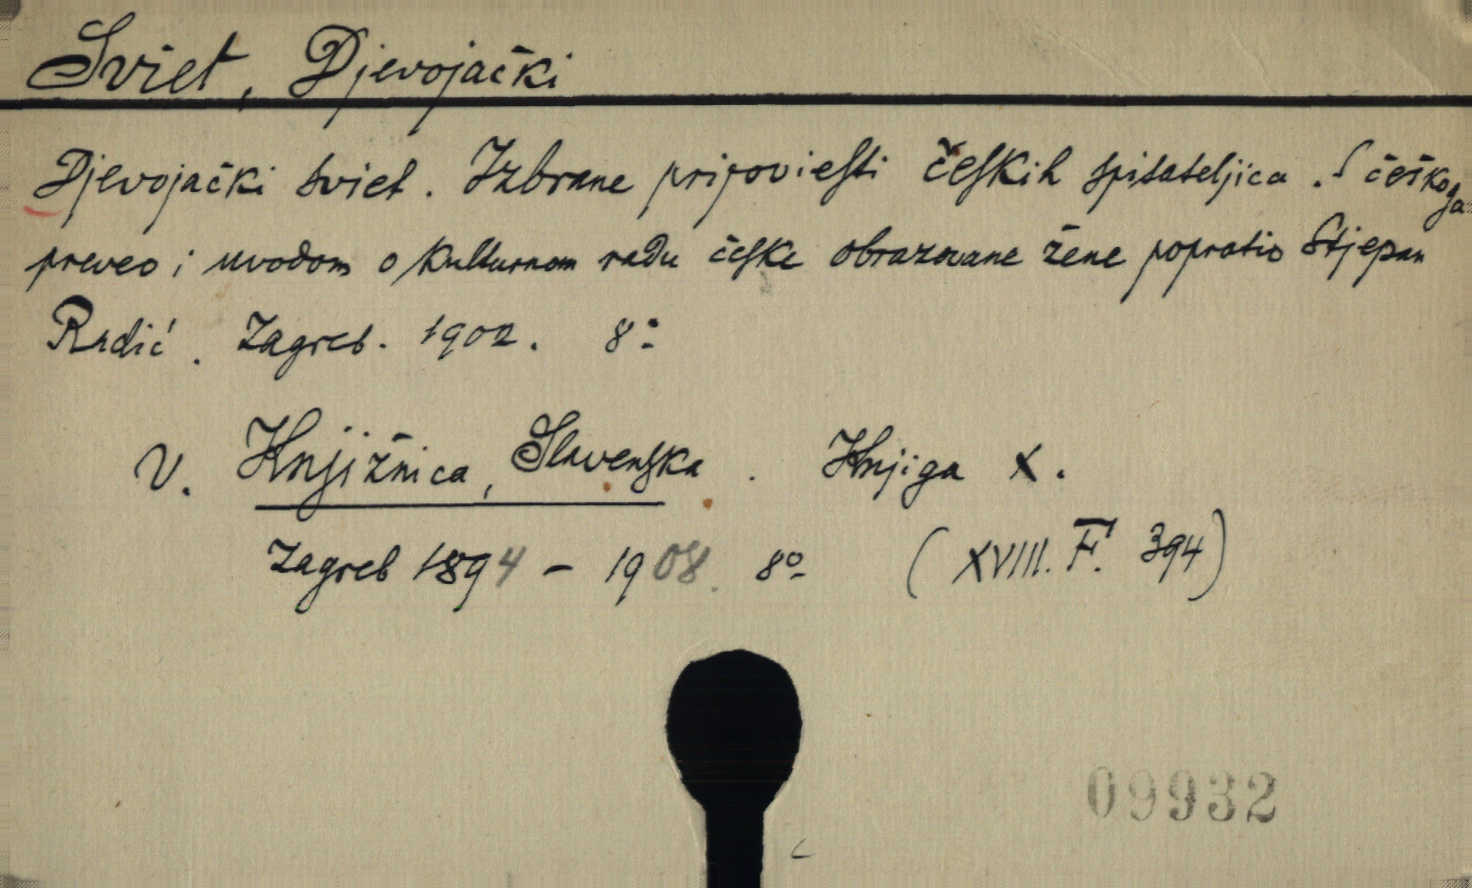 Sviet, Djevojački
Djevojački sviet. Izbrane pripoviesti českih spisateljica. S češkoga
preveo i uvodom o kulturnom radu češke obrazovane žene popratio Stjepan
Radić. Zagreb. 1902. 8º
V. Knjižnica, Slavenska. Knjiga X.
Zagreb 1894 – 1908. 8º (XVIII. F. 394)
09932